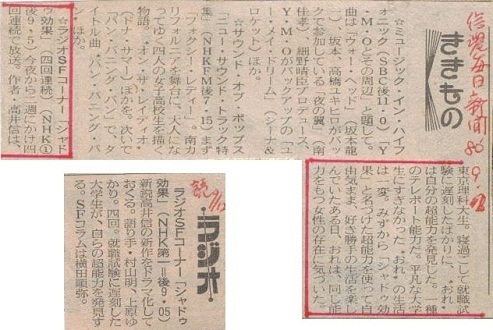 信濃毎日新聞 '80. 9. 12
ききもの
☆ミュージック・イン・ハイフ
ォニック(SBC後11・0)Y
・M・Oとその周辺」と題して。
曲は「ウォー・ヘッド」(坂本龍
一)、坂本、高橋ユキヒロがバッ
クで参加している「夜の翼」(南
佳孝)、細野晴臣プロデュース、
Y・M・Oがバックアップの「コ
ー・メイ・ドリーム」(シーナ&
ロケット)ほか。
☆サウンド・オブ・ポップス
「ニュー・サウンド・トラック特
集」(NHKFM後7・15)まず
「フォクシー・レディー」。南カ
リフォルニアを舞台に、大人にな
ってゆく四人の女子高校生を描く
物語。「オン・ザ・レイディオ」
(ドナ・サマー)ほかを。次いで
で、タ
イトル曲
ほか。
☆ラジオSFコーナー「シャド
ウ効果」(四回連続)(NHK①
後9・5)今夜から二週にかけ四
回連続で放送。作者・高井信は、
東京理科大生。寝過ごして就職試
験に遅刻したばかりに、"おれ"
は自分の超能力を発見した。一種
のテレポート能力だ。平凡な大学
生にすぎなかった"おれ"の生活
は一変。みずから「シャドウ効
果」と名づけた超能力を使って自
由気まま、好き勝手の生活を楽し
んでいたある日、おれは、同じ能
力をもつ女性の存在に気づいた。
読 9/12
ラジオ
ラジオSFコーナー「シャドゥ
効果」(NHK第一=後9・05)
新鋭高井信の新作をドラマ化して
おくる。語り手・村山明、上原ゆ
かり。四回。就職試験に遅刻した
大学生が、自らの超能力を発見す
る。SFコラムは横田順弥。